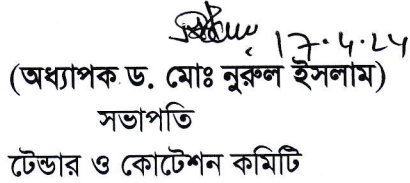 17.4.24
(অধ্যাপক ড. মোঃ নুরুল ইসলাম)
সভাপতি
টেন্ডার ও কোটেশন কমিটি